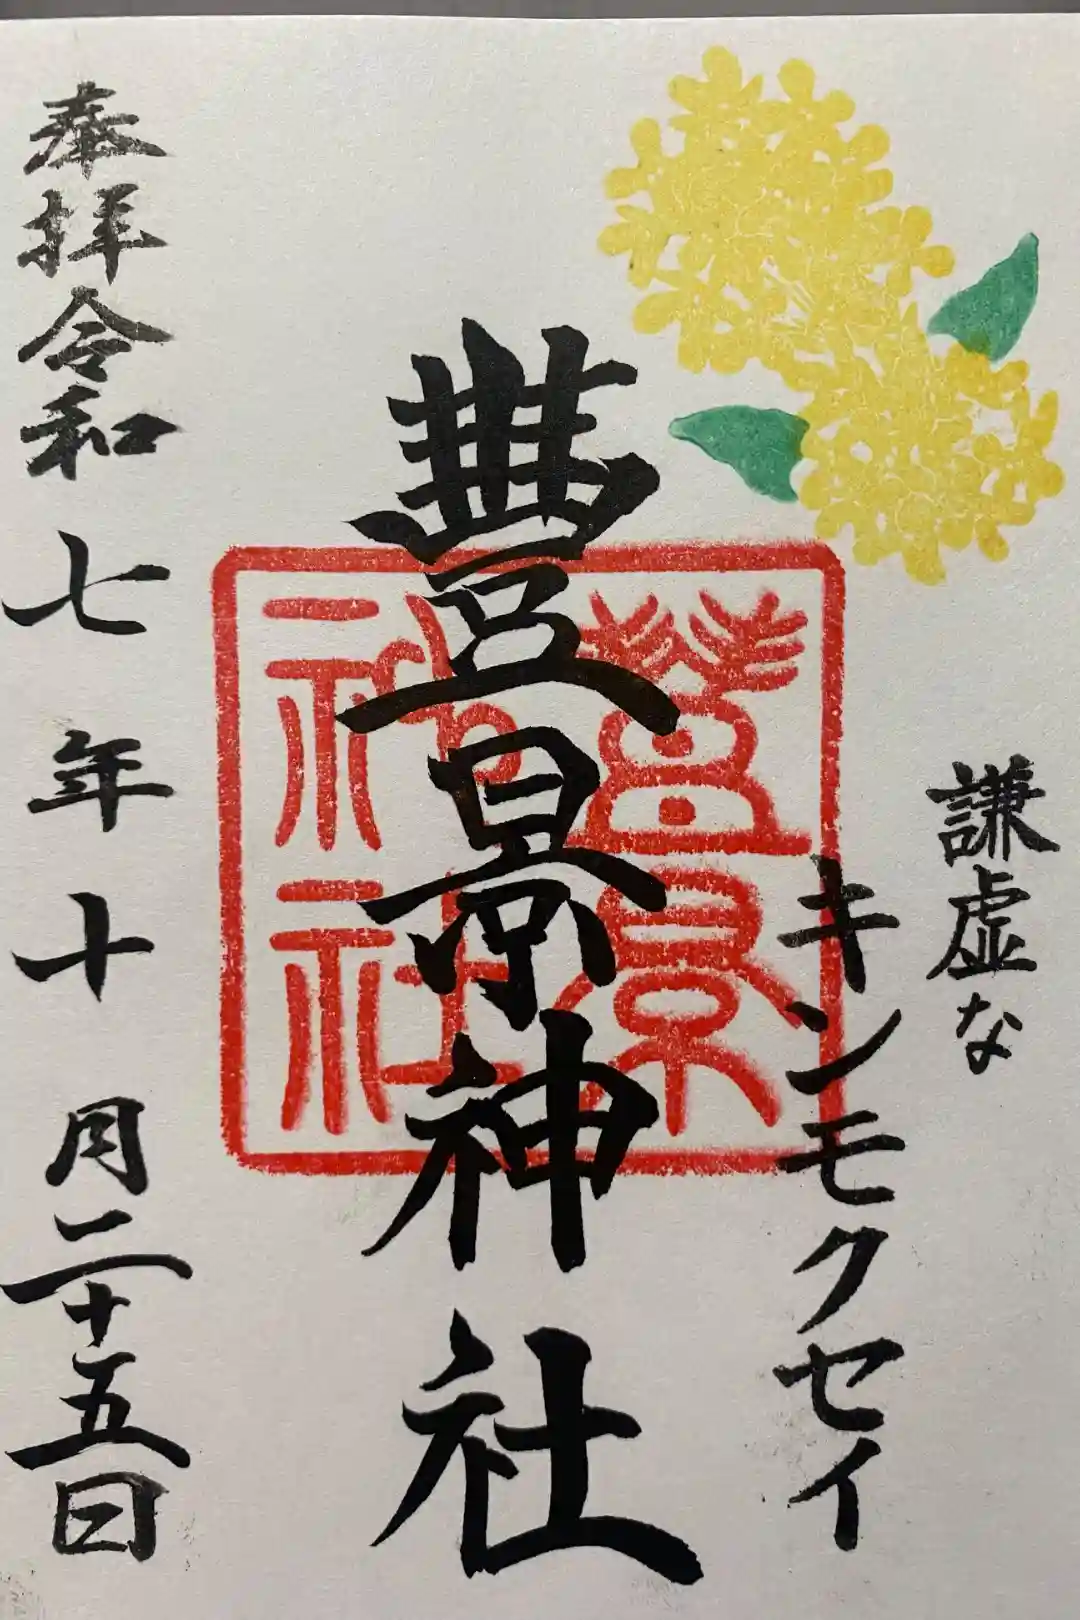 謙虚な
キンモクセイ
豐景神社
豐景
神社
奉拝令和七年十月二十五日